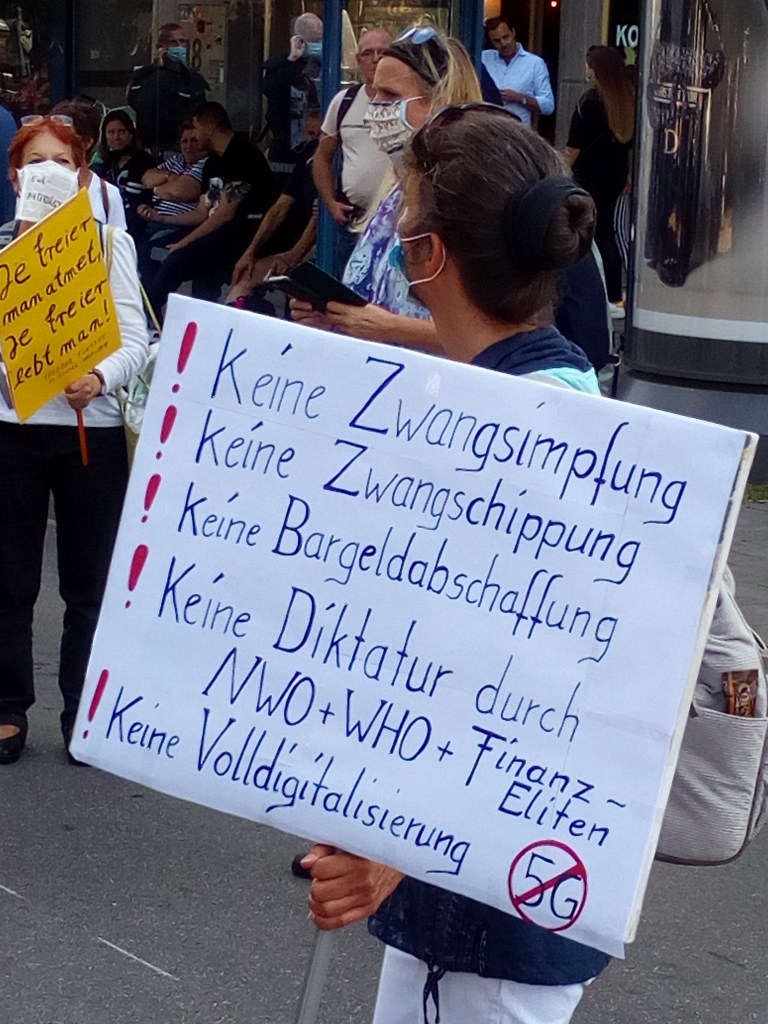 ! Keine Zwangsimpfung
! Keine Zwangschippung
! Keine Bargeldabschaffung
! Keine Diktatur durch
NWO + WHO + Finanz-
Eliten
! Keine Volldigitalisierung
5G
Je freier
man atmet,
Je freier
lebt man!
KO
D